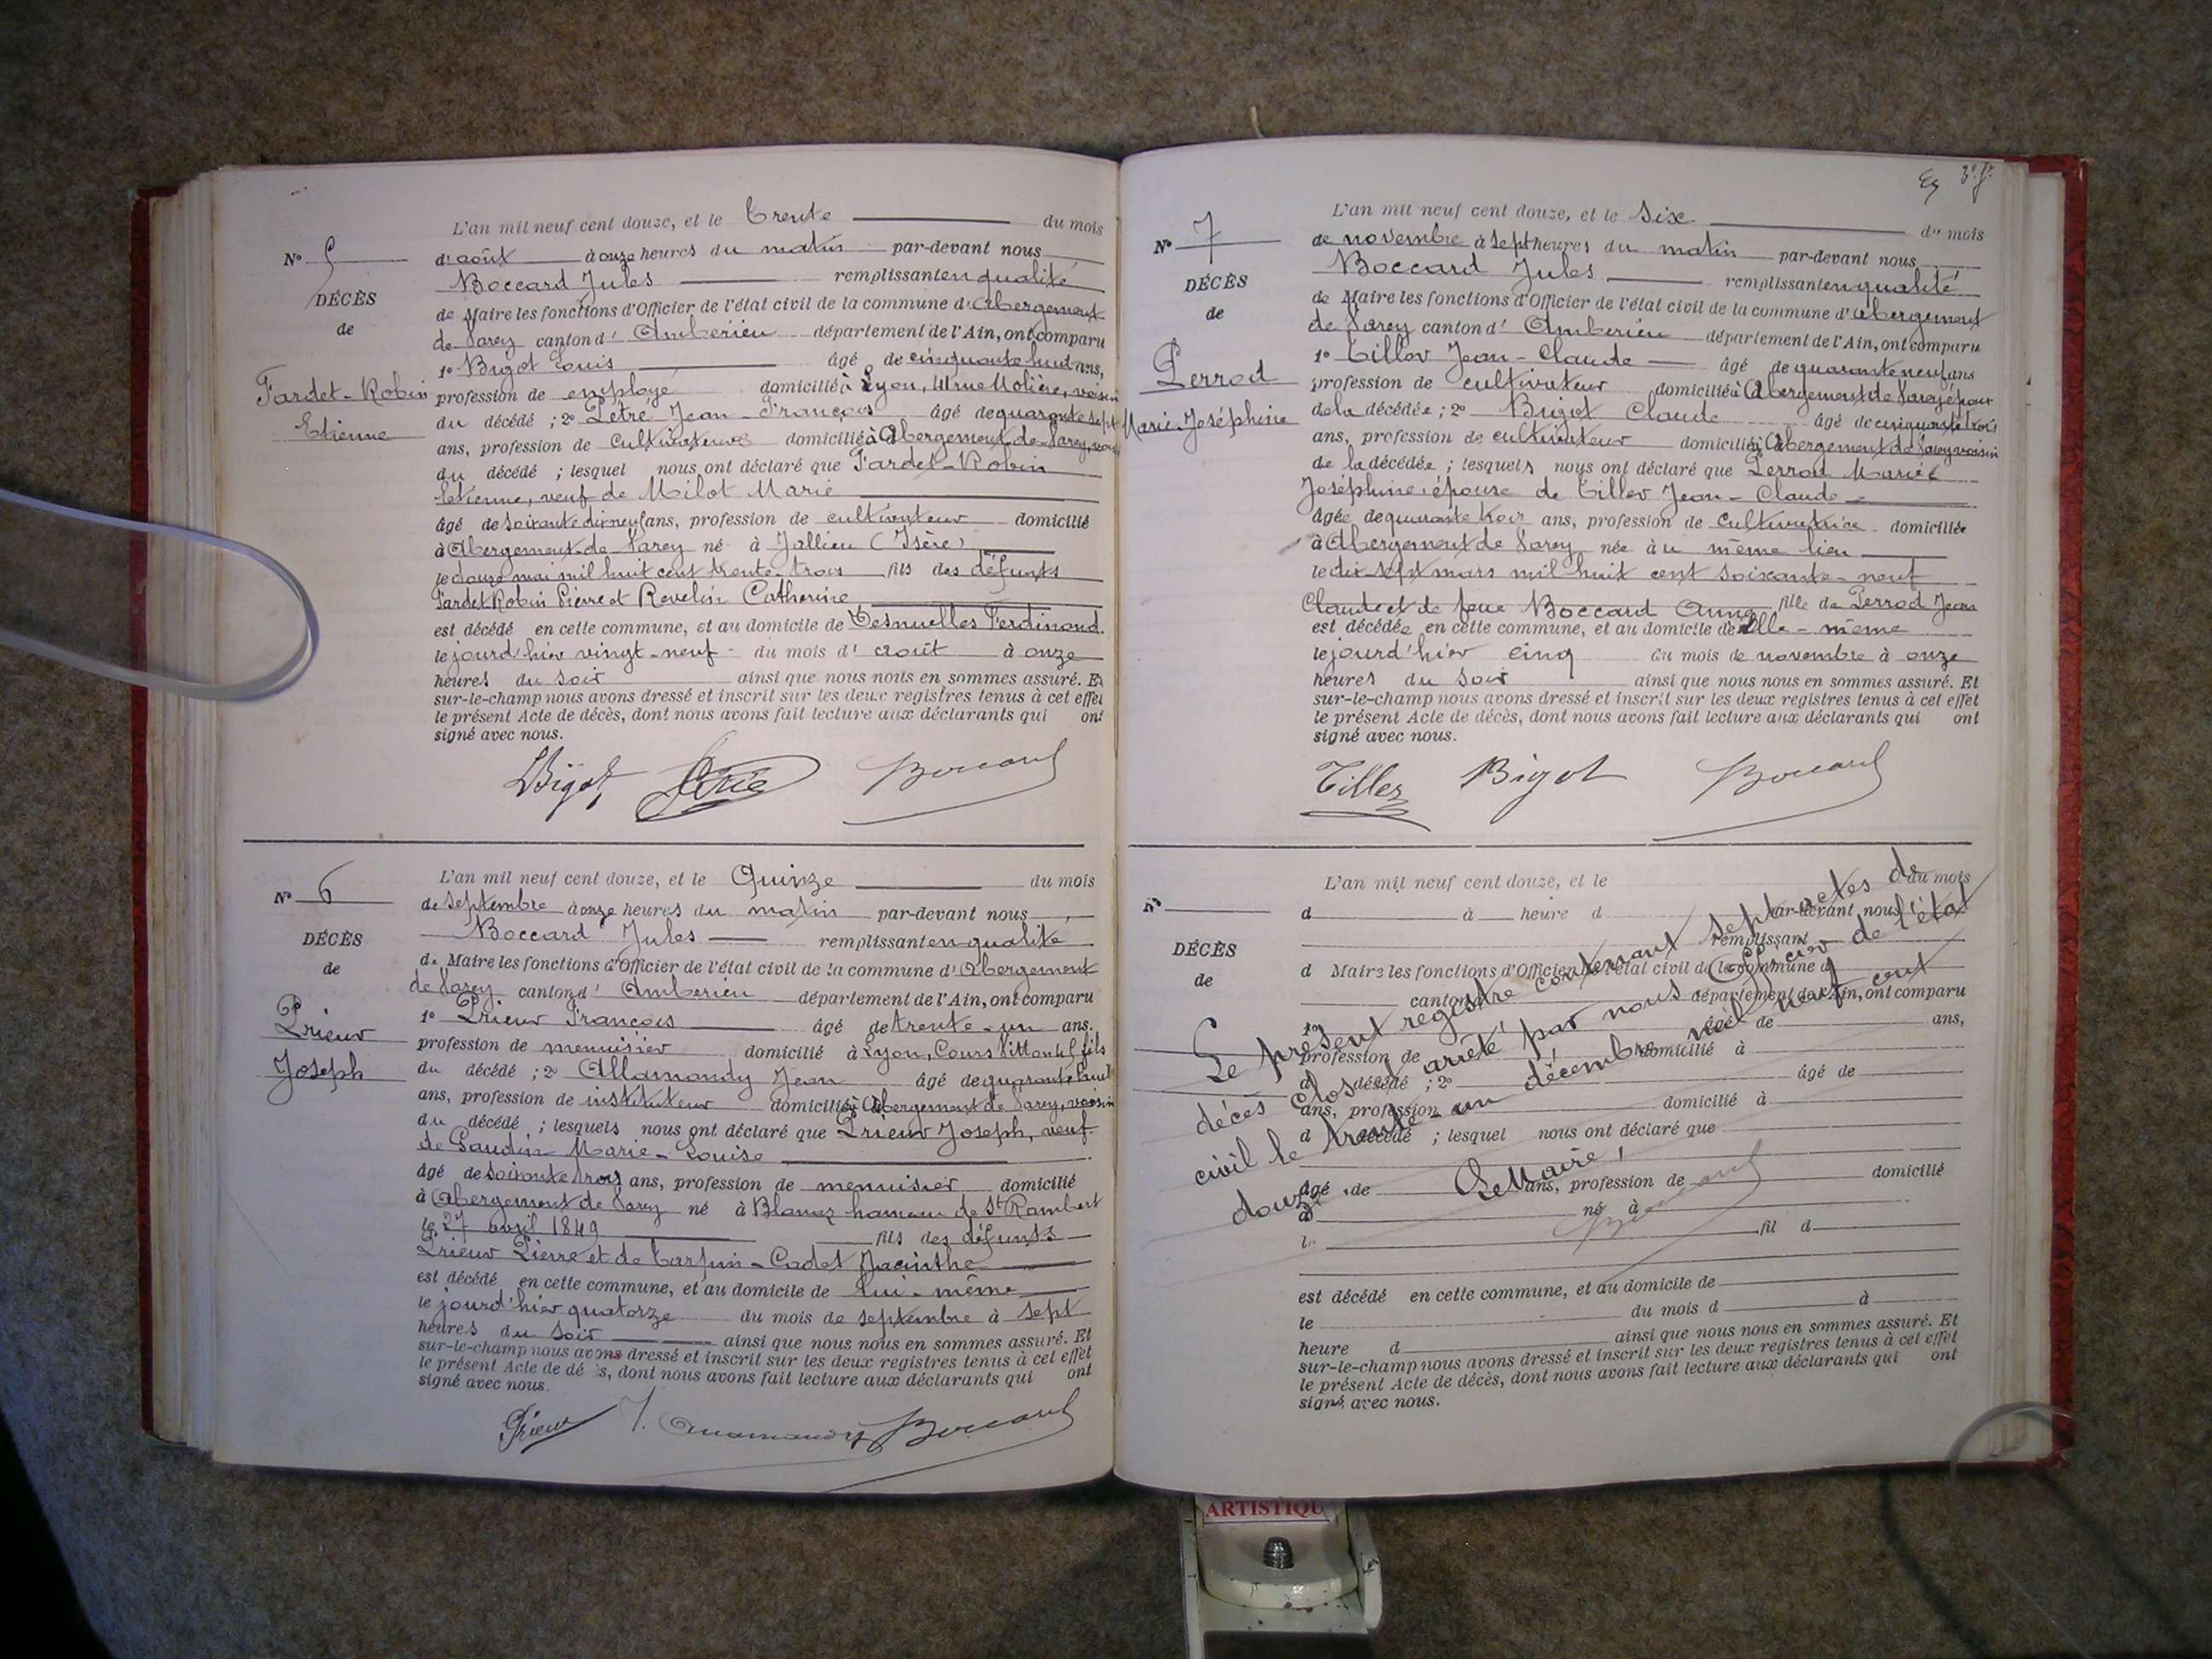 L'an mil neuf cent douze, et le Trente du mois
d'août à onze heures du matin par-devant nous
Boccard Jules remplissant en qualité
de Maire les fonctions d'Officier de l'état civil de la commune d'Abergement
de Varey canton d'Ambérieu département de l'Ain, ont comparu
1º Bigot Louis âgé de cinquante huit ans,
profession de employé domicilié à Lyon, rue Molière, voisin
du décédé ; 2º Pètre Jean-François âgé de quarante sept
ans, profession de cultivateur domicilié à Abergement de Varey,
du décédé ; lesquel nous ont déclaré que Fardet-Robin
Etienne, veuf de Milot Marie
âgé de soixante dix neuf ans, profession de cultivateur domicilié
à Abergement de Varey né à Jallieu (Isère)
le douze mai mil huit cent trente-trois fils des défunts
Fardet Robin Pierre et Revelin Catherine
est décédé en cette commune, et au domicile de Desnuelles Ferdinand.
le jourd'hier vingt-neuf du mois d'août à onze
heures du soir ainsi que nous nous en sommes assuré. Et
sur-le-champ nous avons dressé et inscrit sur les deux registres tenus à cet effet
le présent Acte de décès, dont nous avons fait lecture aux déclarants qui ont
signé avec nous.
Nº 5
DÉCÈS
de
Fardet-Robin
Etienne
LBigot Boccard
L'an mil neuf cent douze, et le Quinze du mois
de septembre à onze heures du matin par-devant nous
Boccard Jules remplissant en qualité
de Maire les fonctions d'Officier de l'état civil de la commune d'Abergement
de Varey canton d'Ambérieu département de l'Ain, ont comparu
1º Prieur François âgé de trente-un ans.
profession de menuisier domicilié à Lyon, Cours Vitton fils
du décédé ; 2º Allamandy Jean âgé de quarante huit
ans, profession de instituteur domicilié à Abergement de Varey, voisin
du décédé ; lesquels nous ont déclaré que Prieur Joseph, veuf
de Gaudin Marie-Louise
âgé de soixante trois ans, profession de menuisier domicilié
à Abergement de Varey né à Blanaz hameau de St Rambert
le 27 avril 1849 fils des défunts
Prieur Pierre et de Tarpin-Cadet Jacinthe
est décédé en cette commune, et au domicile de lui-même
le jourd'hier quatorze du mois de septembre à sept
heures du soir ainsi que nous nous en sommes assuré. Et
sur-le-champ nous avons dressé et inscrit sur les deux registres tenus à cet effet
le présent Acte de dé s, dont nous avons fait lecture aux déclarants qui ont
signé avec nous.
Nº 6
DÉCÈS
de
Prieur
Joseph
Prieur Boccard
L'an mil neuf cent douze, et le six du mois
de novembre à sept heures du matin par-devant nous
Boccard Jules remplissant en qualité
de Maire les fonctions d'Officier de l'état civil de la commune d'Abergement
de Varey canton d'Ambérieu département de l'Ain, ont comparu
1º Tiller Jean-Claude âgé de quarante neuf ans
profession de cultivateur domicilié à Abergement de Varey époux
de la décédée ; 2º Bigot Claude âgé de cinquante trois
ans, profession de cultivateur domicilié à Abergement de Varey voisin
de la décédée ; lesquels nous ont déclaré que Perrod Marie
Joséphine épouse de Tiller Jean-Claude
âgée de quarante trois ans, profession de cultivatrice domiciliée
à Abergement de Varey née au même lieu
le dix-sept mars mil huit cent soixante-neuf
Claude et de feue Boccard Anne fille de Perrod Jean
est décédée en cette commune, et au domicile de elle-même
le jourd'hier cinq du mois de novembre à onze
heures du soir ainsi que nous nous en sommes assuré. Et
sur-le-champ nous avons dressé et inscrit sur les deux registres tenus à cet effet
le présent Acte de décès, dont nous avons fait lecture aux déclarants qui ont
signé avec nous.
Nº 7
DÉCÈS
de
Perrod
Marie-Joséphine
Tiller Bigot Boccard
L'an mil neuf cent douze, et le du mois
Nº
d à heure d par-devant nous
remplissant
DÉCÈS
d Maire les fonctions d'Officier de l'état civil de la commune d
de
canton d département de l'Ain, ont comparu
1º âgé de ans,
profession de domicilié à
d décédé ; 2º âgé de
ans, profession domicilié à
d décédé ; lesquel nous ont déclaré que
âgé de ans, profession de domicilié
à né à
le fil d
est décédé en cette commune, et au domicile de
le du mois d à
heure d ainsi que nous nous en sommes assuré. Et
sur-le-champ nous avons dressé et inscrit sur les deux registres tenus à cet effet
le présent Acte de décès, dont nous avons fait lecture aux déclarants qui ont
signé avec nous.
Le présent registre contenant sept actes de
décès clos et arrêté par nous Officier de l'état
civil le trente-un décembre mil neuf cent
douze
Le Maire,
Boccard
ARTISTIQU